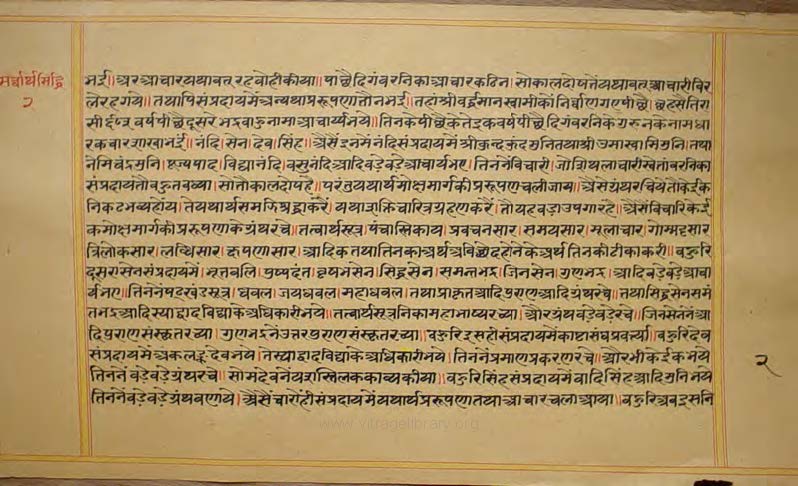 सर्वार्थसिद्धि
२
भई॥ अर आचार यथावत् रह वोही कीया॥ पाछै दिगंबरनिका आचार कठिन। सो कालदोषतैं यथावत् आचारी विर
ले रह गये॥ तथापि संप्रदायमें अन्यथा प्ररूपणा तौ न भई॥ तहां श्रीवर्द्धमानस्वामीकों निर्वाण गए पीछै। छहसै तिरा
सी ६८३ वर्ष पीछै दूसरे भद्रबाहु नामा आचार्य भये॥ तिनके पीछै केतेइक वर्ष पीछै दिगंबरनिके गुरुनके नाम धा
रक चार शाखा भई॥ नंदि। सेन। देव। सिंह॥ अैसैं इनमें नंदिसंप्रदायमें श्रीकुन्दकुंद मुनि तथा श्रीउमास्वामि मुनि। तथा
नेमिचंद्र मुनि। पूज्यपाद। विद्यानंदि। वसुनंदि आदि वडे वडे आचार्य भए॥ तिननें विचारी। जो शिथलाचारी स्वेतांबरनिका
संप्रदाय तौ बहुत बध्या॥ सो तौ कालदोष है॥ परंतु यथार्थ मोक्षमार्गकी प्ररूपणा चली जाय॥ अैसे ग्रंथ रचिये तौ केईक
निकटभव्य होय। ते यथार्थ समझि श्रद्धा करैं। यथाशक्ति चारित्र ग्रहण करैं। तौ यह वडा उपगार है॥ अैसें विचारि केई
क मोक्षमार्गकी प्ररूपणाके ग्रंथ रचे॥ तत्वार्थसूत्र। पंचास्तिकाय। प्रवचनसार। समयसार। मूलाचार। गोम्मट्टसार
त्रिलोकसार। लब्धिसार। क्षपणासार। आदिक तथा तिनका अर्थ अविछेद होनेके अर्थ तिनकी टीका करी॥ बहुरि
दूसरा सेनसंप्रदायमें। भूतबलि। पुष्पदंत। वृषभसेन। सिद्धसेन। समन्तभद्र। जिनसेन। गुणभद्र। आदि वडे वडे आचा
र्य भए॥ तिननें षट्खंडसूत्र। धवल। जयधवल। महाधवल। तथा प्राकृत आदिपुराण आदि ग्रंथ रचे॥ तथा सिद्धसेन समं
तभद्र आदि स्याद्वादविद्याके अधिकारी भये॥ तत्वार्थसूत्रनिका महाभाष्य रच्या॥ और ग्रंथ वडे वडे रचे॥ जिनसेननें आ
दिपुराण संस्कृत रच्या॥ गुणभद्रनें उत्तरपुराण संस्कृत रच्या॥ बहुरि इसही संप्रदायमें काष्ठासंघ प्रवर्त्या॥ बहुरि देव
संप्रदायमें अकलङ्कदेव भये। ते स्याद्वादविद्याके अधिकारी भये॥ तिननें प्रमाणप्रकरण रचे॥ और भी केईक भये
तिननें वडे वडे ग्रंथ रचे॥ सोमदेवनें यशस्तिलककाव्य कीया॥ बहुरि सिंहसंप्रदायमें वादिसिंह आदि मुनि भये
तिननें वडे वडे ग्रंथ वणाये। अैसे च्यारोंही संप्रदायमें यथार्थ प्ररूपणा तथा आचार चला आया॥ बहुरि अब इस नि
२
www.vitragelibrary.org